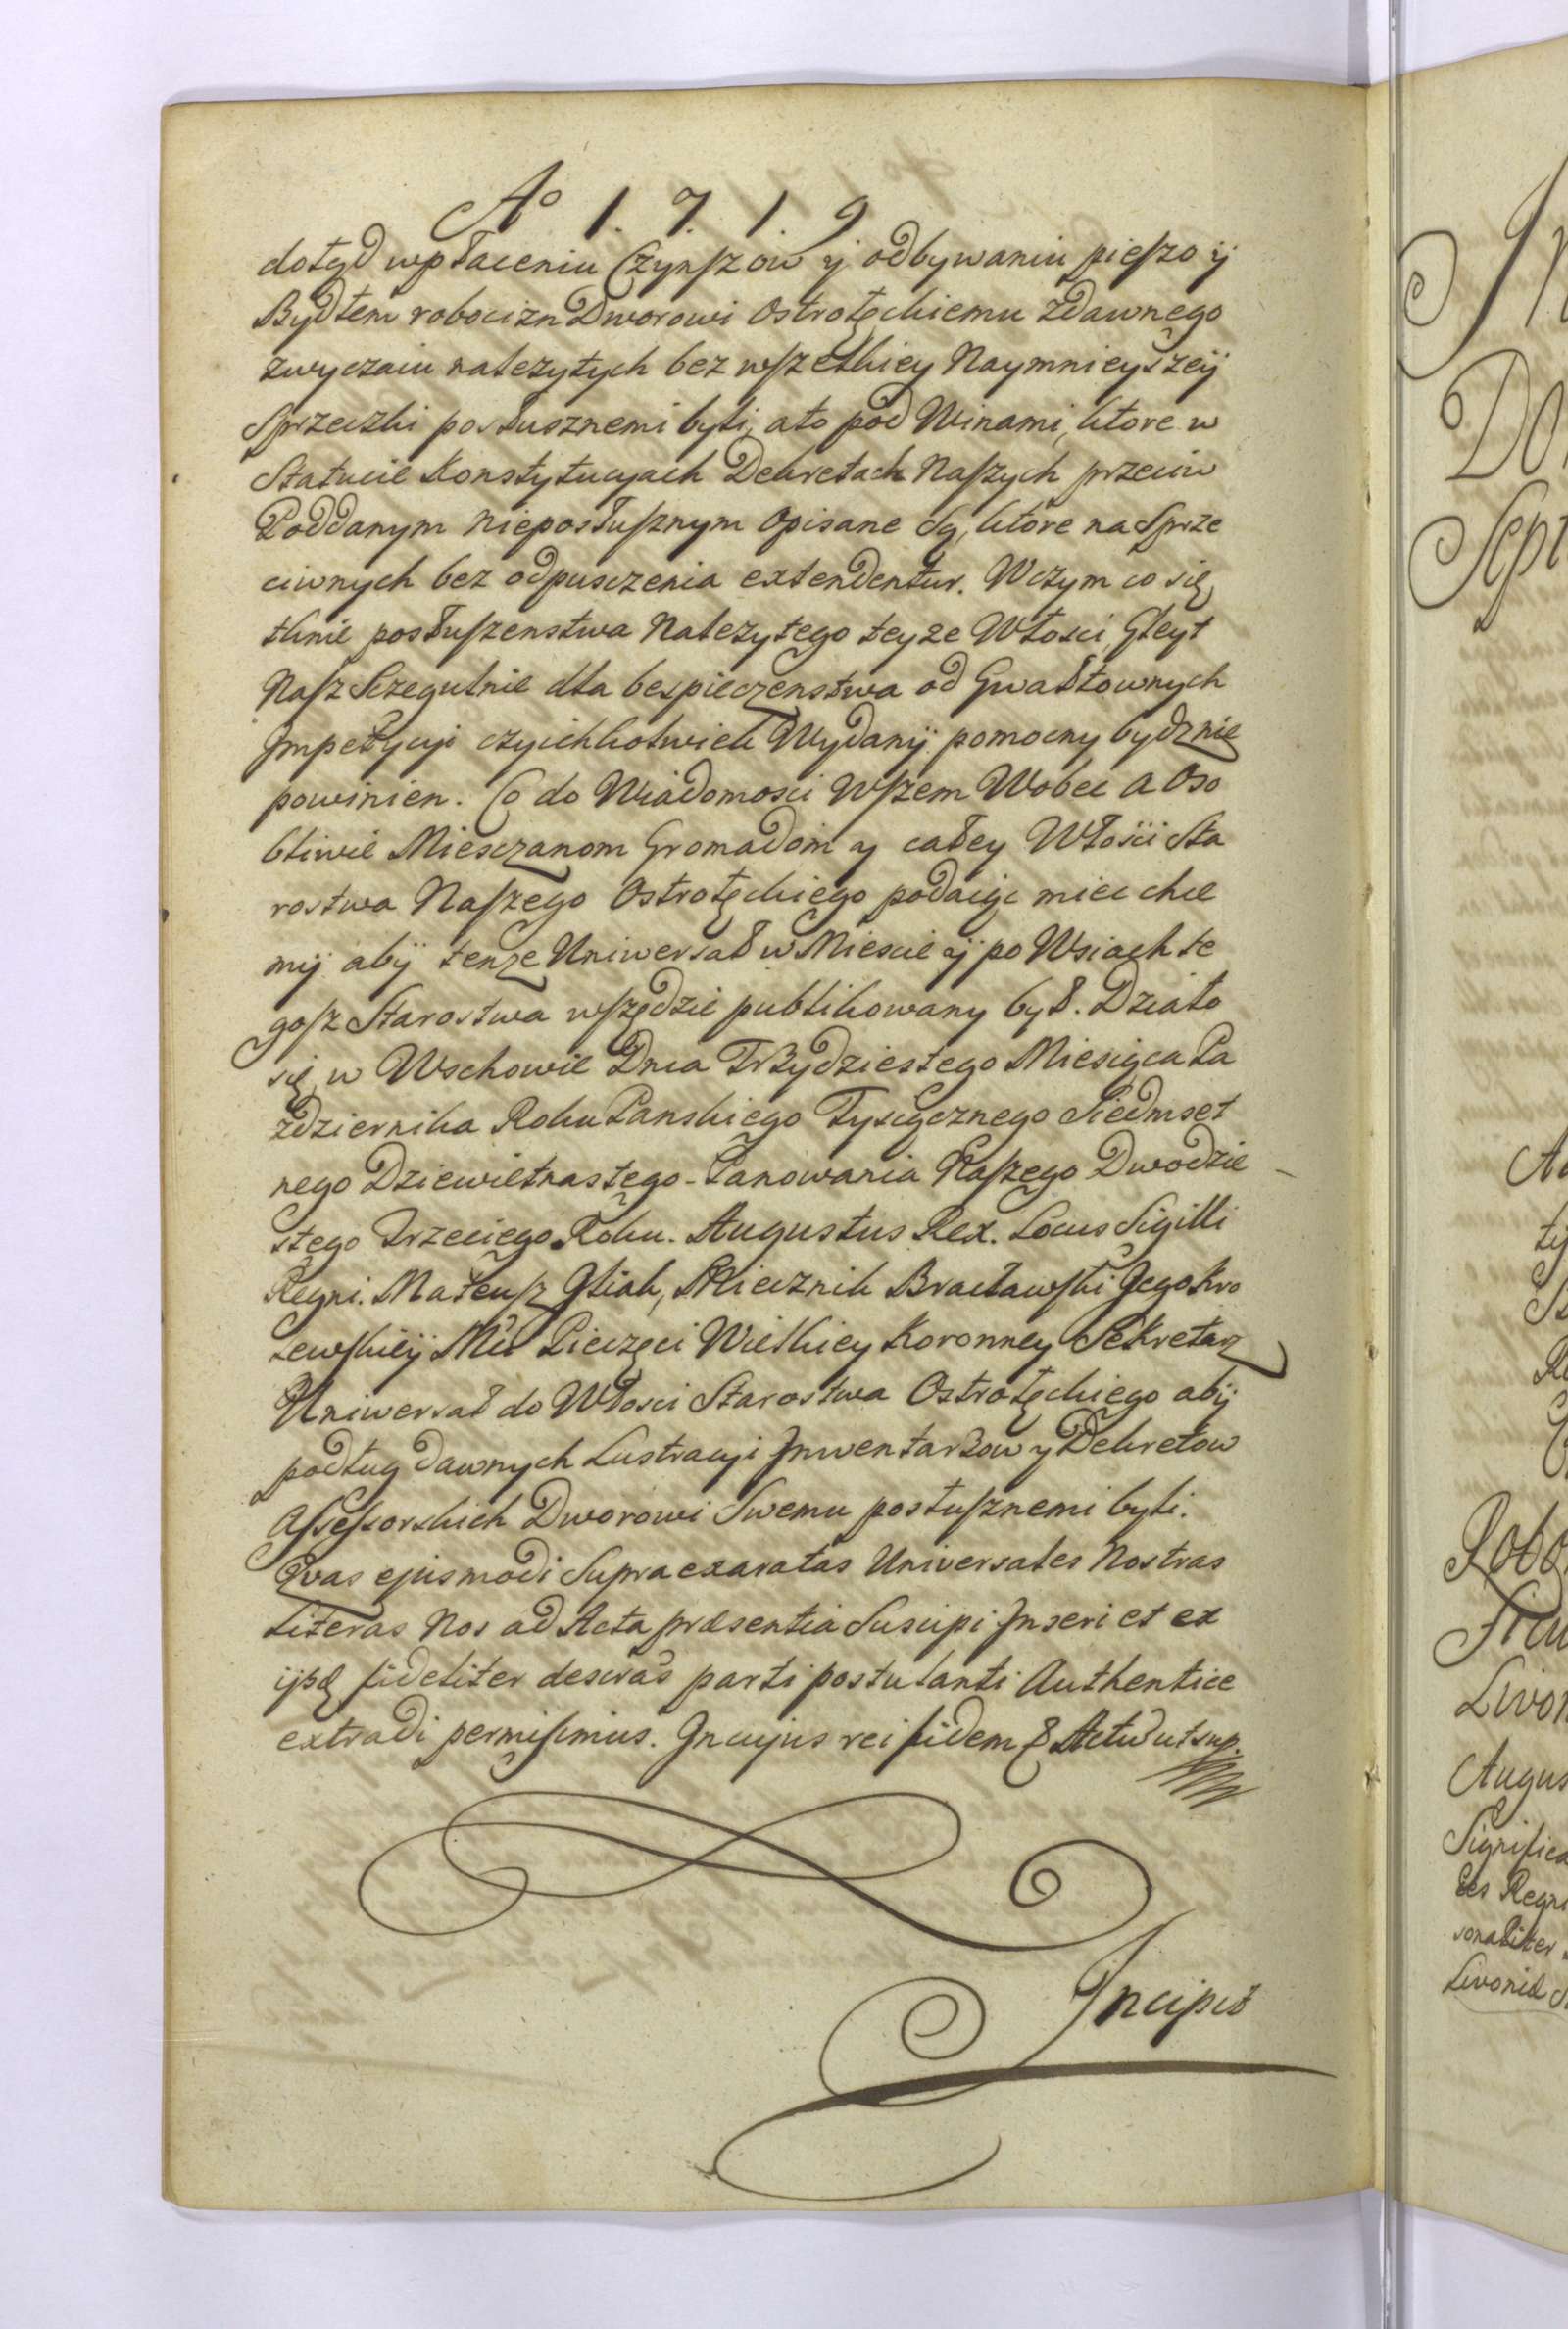 Ao 1. 7. 1. 9
dotąd wpłaceniu Czynszow ÿ odbywaniu pieszo ÿ
Bydłem robocizn Dworowi Ostrołęckiemu zdawnego
zwyczaiu nalezytych bez wszelkiey Naymnieyszeÿ
Sprzeczki posłusznemi byli, ato pod Winami, ktore w
Statucie Konstytucyach Dekretach Naszych przeciw
Poddanym nieposłusznym Opisane Są, ktore na Sprze
ciwnych bez odpusczenia extendentur. Wczym co się
tknie posłuszenstwa Nalezytego teyze Włosci, Gleyt
Nasz Sczegulnie dla bespieczenstwa od Gwałtownych
Jmpetycyi czyichkolwiek Wydanÿ pomocny bydz nie
powinien. Co do Wiadomosci Wszem Wobec a Oso
bliwie Miesczanom Gromadom y całey Włosci Sta
rostwa Naszego Ostrołęckiego podaiąc miec chce
mÿ abÿ tenze Uniwersał w Miescie ÿ po Wsiach te
gosz Starostwa wszędzie publikowany był. Działo
się w Wschowie Dnia TRzydziestego Miesiąca Pa
zdziernika Roku Panskiego Tysiącznego Siedmset
nego Dziewietnastego - Panowania Naszego Dwodzie
stego Trzeciego Roku. Augustus Rex. Locus Sigilli
Regni. Mateusz Gliak, Miecznik Bracławski Jego Kro
lewskieÿ Mci Pieczęci Wielkiey Koronney Sekretarz
Uniwersał do Włosci Starostwa Ostrołęckiego abÿ
podług dawnych Lustracyi JnwentaRzow y Dekretow
Assessorskich Dworowi Swemu posłusznemi byli.
Qvas ejusmodi Supra exaratas Universales Nostras
Literas Nos ad Acta præsentia Suscipi Jnseri et ex
ijsd fideliter descras parti postulanti Authentice
extradi permisimus. Jn cujus rei fidem & Act ut sup.
Jncipit